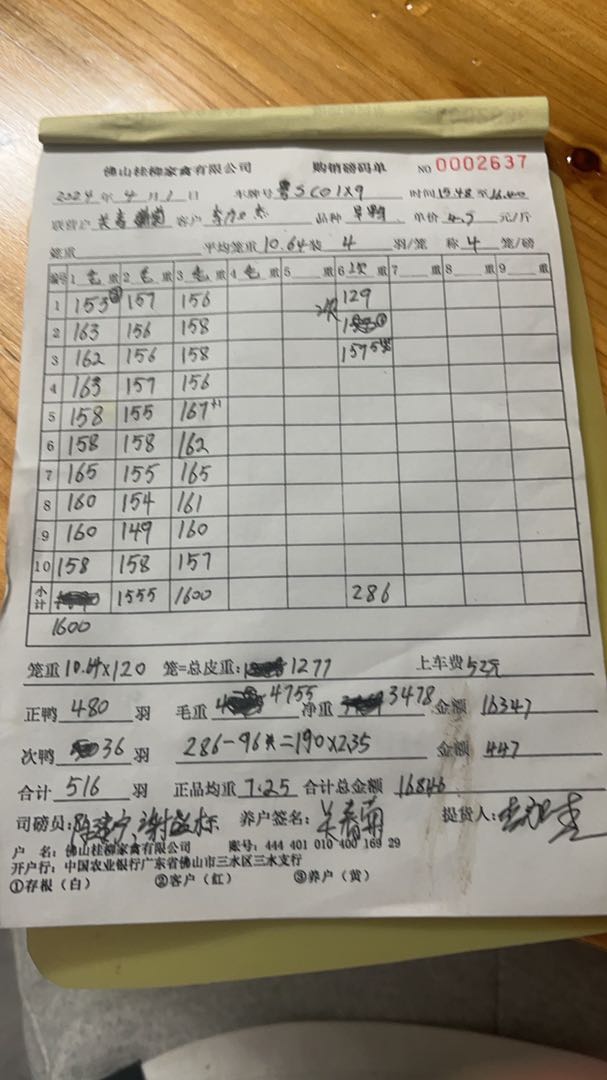 佛山桂柳家禽有限公司 购销磅码单 NO 0002637
2024 年 4 月 1 日 车牌号 粤SC01X9 时间 15.48 至 16.40
联营户 关 客户 品种 旱鸭 单价 4.7 元/斤
笼重 平均笼重 10.64 装 4 羽/笼 称 4 笼/磅
编号 1 毛 重 2 毛 重 3 毛 重 4 毛 重 5 重 6 次 重 7 重 8 重 9 重
1 153 157 156 129
2 163 156 158
3 162 156 158 157
4 163 157 156
5 158 155 167+1
6 158 158 162
7 165 155 165
8 160 154 161
9 160 149 160
10 158 158 157
小计 1555 1600 286
1600
笼重 10.64×120 笼=总皮重: 1277 上车费 52元
正鸭 480 羽 毛重 4755 净重 3478 金额 16347
次鸭 36 羽 286-96 =190×2.35 金额 447
合计 516 羽 正品均重 7.25 合计总金额 16846
司磅员: 养户签名: 关 提货人:
户 名: 佛山桂柳家禽有限公司 账号: 444 401 010 400 169 29
开户行: 中国农业银行广东省佛山市三水区三水支行
①存根(白) ②客户(红) ③养户(黄)